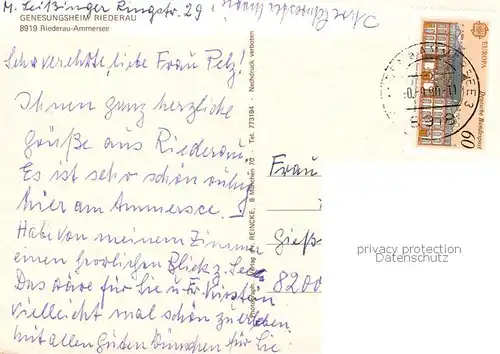 M. Leißinger Ringstr. 29
GENESUNGSHEIM RIEDERAU
8919 Riederau-Ammersee
Sehr verehrte, liebe Frau Pelz!
Ihnen ganz herzliche
grüße aus Riederau.
Es ist sehr schön ruhig
hier am Ammersee.
Habe von meinem Zimmer
einen herrlichen Blick z. See.
Das wäre für Sie u. Fr. Kirsten
vielleicht mal schön zu erleben
mit allen guten Wünschen für Sie
REINCKE, 8 München 70 Tel. 773194 - Nachdruck verboten
EUROPA
Deutsche Bundespost
60
SEE 3
Frau
Gieß
8200
privacy protection
Datenschutz